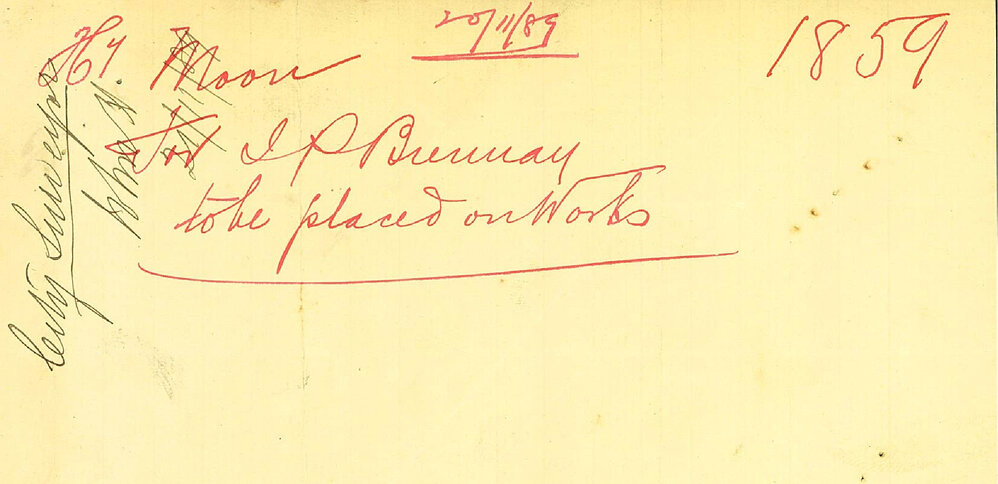 20/11/89
1859
Hy Moon
for J P Brennay
to be placed on Works
City Surveyor